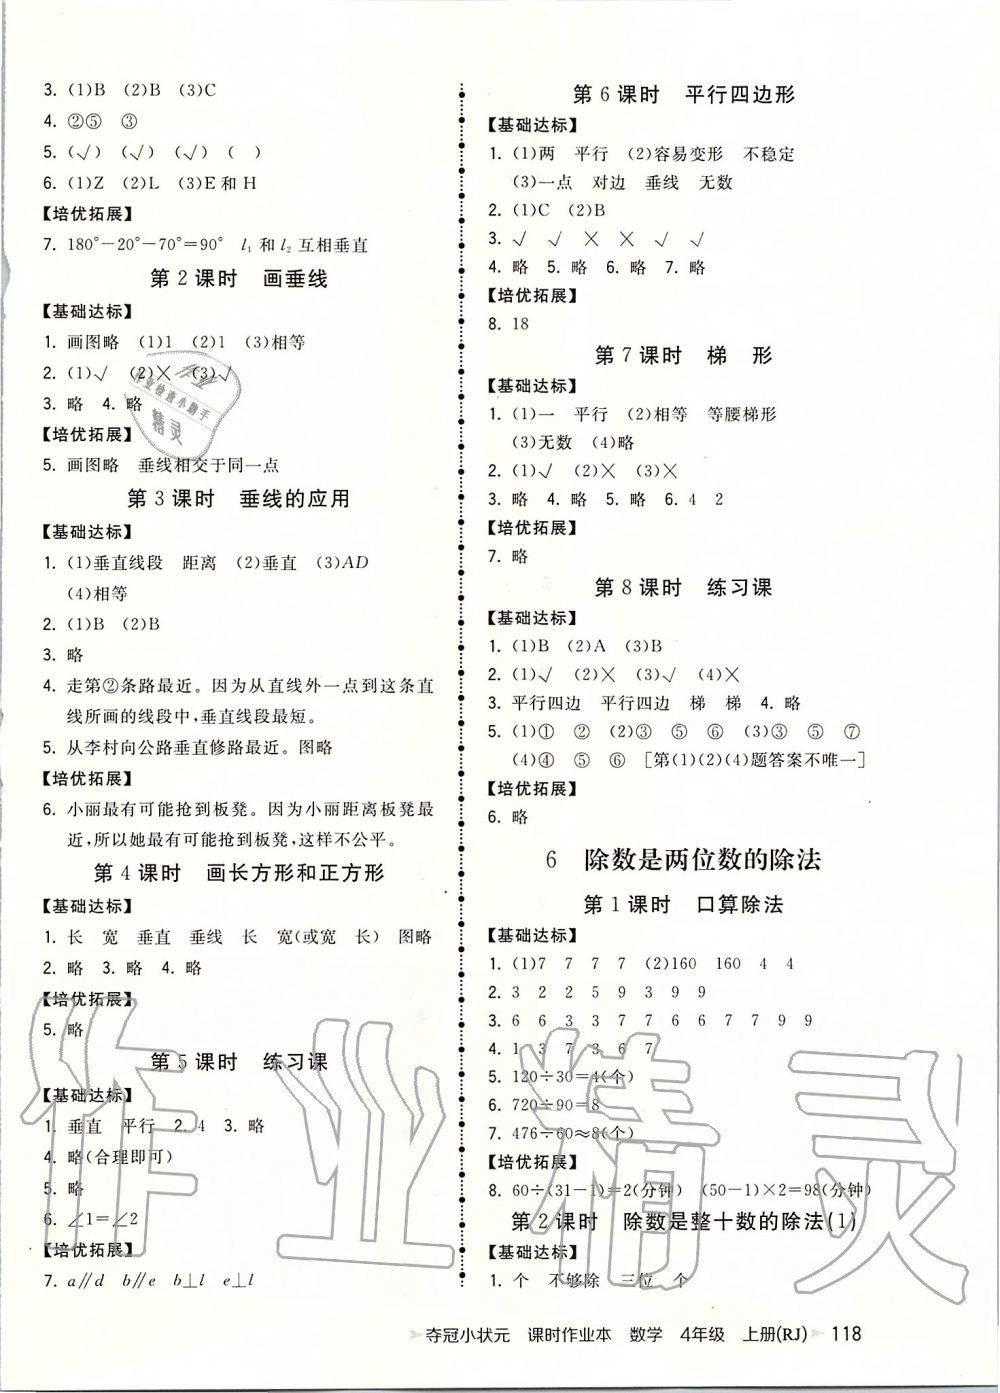 3. (1)B (2)B (3)C
4. ②⑤ ③
5. (√) (√) (√) ( )
6. (1)Z (2)L (3)E 和 H
【培优拓展】
7. 180°－20°－70°＝90° l₁ 和 l₂ 互相垂直
第 2 课时 画垂线
【基础达标】
1. 画图略 (1)1 (2)1 (3)相等
2. (1)√ (2)× (3)√
3. 略 4. 略
【培优拓展】
5. 画图略 垂线相交于同一点
第 3 课时 垂线的应用
【基础达标】
1. (1)垂直线段 距离 (2)垂直 (3)AD
(4)相等
2. (1)B (2)B
3. 略
4. 走第②条路最近。因为从直线外一点到这条直
线所画的线段中,垂直线段最短。
5. 从李村向公路垂直修路最近。图略
【培优拓展】
6. 小丽最有可能抢到板凳。因为小丽距离板凳最
近,所以她最有可能抢到板凳,这样不公平。
第 4 课时 画长方形和正方形
【基础达标】
1. 长 宽 垂直 垂线 长 宽(或宽 长) 图略
2. 略 3. 略 4. 略
【培优拓展】
5. 略
第 5 课时 练习课
【基础达标】
1. 垂直 平行 2. 4 3. 略
4. 略(合理即可)
5. 略
6. ∠1＝∠2
【培优拓展】
7. a∥d b∥e b⊥l e⊥l
第 6 课时 平行四边形
【基础达标】
1. (1)两 平行 (2)容易变形 不稳定
(3)一点 对边 垂线 无数
2. (1)C (2)B
3. √ √ × × √ √
4. 略 5. 略 6. 略 7. 略
【培优拓展】
8. 18
第 7 课时 梯 形
【基础达标】
1. (1)一 平行 (2)相等 等腰梯形
(3)无数 (4)略
2. (1)√ (2)× (3)×
3. 略 4. 略 5. 略 6. 4 2
【培优拓展】
7. 略
第 8 课时 练习课
【基础达标】
1. (1)B (2)A (3)B
2. (1)√ (2)× (3)√ (4)×
3. 平行四边 平行四边 梯 梯 4. 略
5. (1)① ② (2)③ ⑤ ⑥ (3)③ ⑤ ⑦
(4)④ ⑤ ⑥ [第(1)(2)(4)题答案不唯一]
【培优拓展】
6. 略
6 除数是两位数的除法
第 1 课时 口算除法
【基础达标】
1. (1)7 7 7 7 (2)160 160 4 4
2. 3 2 2 5 9 3 9 9
3. 6 6 3 3 7 7 6 6 7 7 9 9
4. 1 3 7 3 6 7
5. 120÷30＝4(个)
6. 720÷90＝8
7. 476÷60≈8(个)
【培优拓展】
8. 60÷(31－1)＝2(分钟) (50－1)×2＝98(分钟)
第 2 课时 除数是整十数的除法(1)
【基础达标】
1. 个 不够除 三位 个
夺冠小状元 课时作业本 数学 4年级 上册(RJ) 118
作业检查小助手
精灵
作业精灵